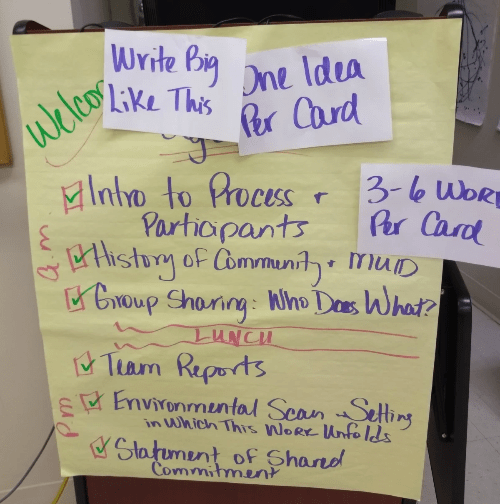 Write Big
Like This
One Idea
Per Card
Welco
3-6 Wor
Per Card
a.m.
Intro to Process +
Participants
History of Community + MUID
Group Sharing: Who Does What?
LUNCH
pm
Team Reports
Environmental Scan - Setting
in which This Work Unfolds
Statement of Shared
Commitment